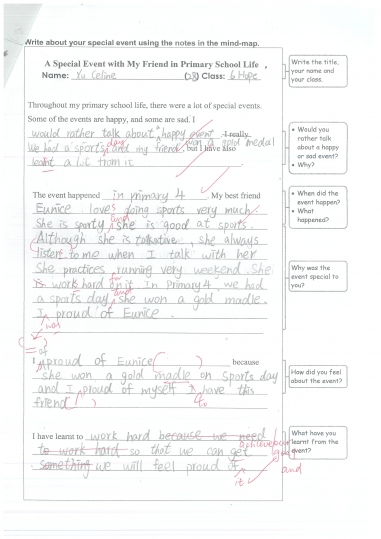 Write about your special event using the notes in the mind-map.
A Special Event with My Friend in Primary School Life
Name: Yu Celine (28) Class: 6 Hope
Write the title,
your name and
your class.
Throughout my primary school life, there were a lot of special events.
Some of the events are happy, and some are sad. I
would rather talk about a happy event. I really
We had a sports day and my friend won a gold medal
, but I have also
learnt a lot from it
• Would you
rather talk
about a happy
or sad event?
• Why?
The event happened in primary 4. My best friend
Eunice loves doing sports very much.
She is sporty and she is good at sports.
Although she is talkative, she always
listens to me when I talk with her
She practices running very weekend. She
is work hard for on it. In Primary 4, we had
a sports day and she won a gold madle.
I proud of Eunice.
was
• When did the
event happen?
• What
happened?
Why was the
event special to
you?
= of
I proud of Eunice ( ) because
she won a gold madle on sports day
and I proud of myself I have this
friend ( )
How did you feel
about the event?
I have learnt to work hard because we need
to work hard so that we can get
something we will feel proud of
it
and
What have you
learnt from the
event?